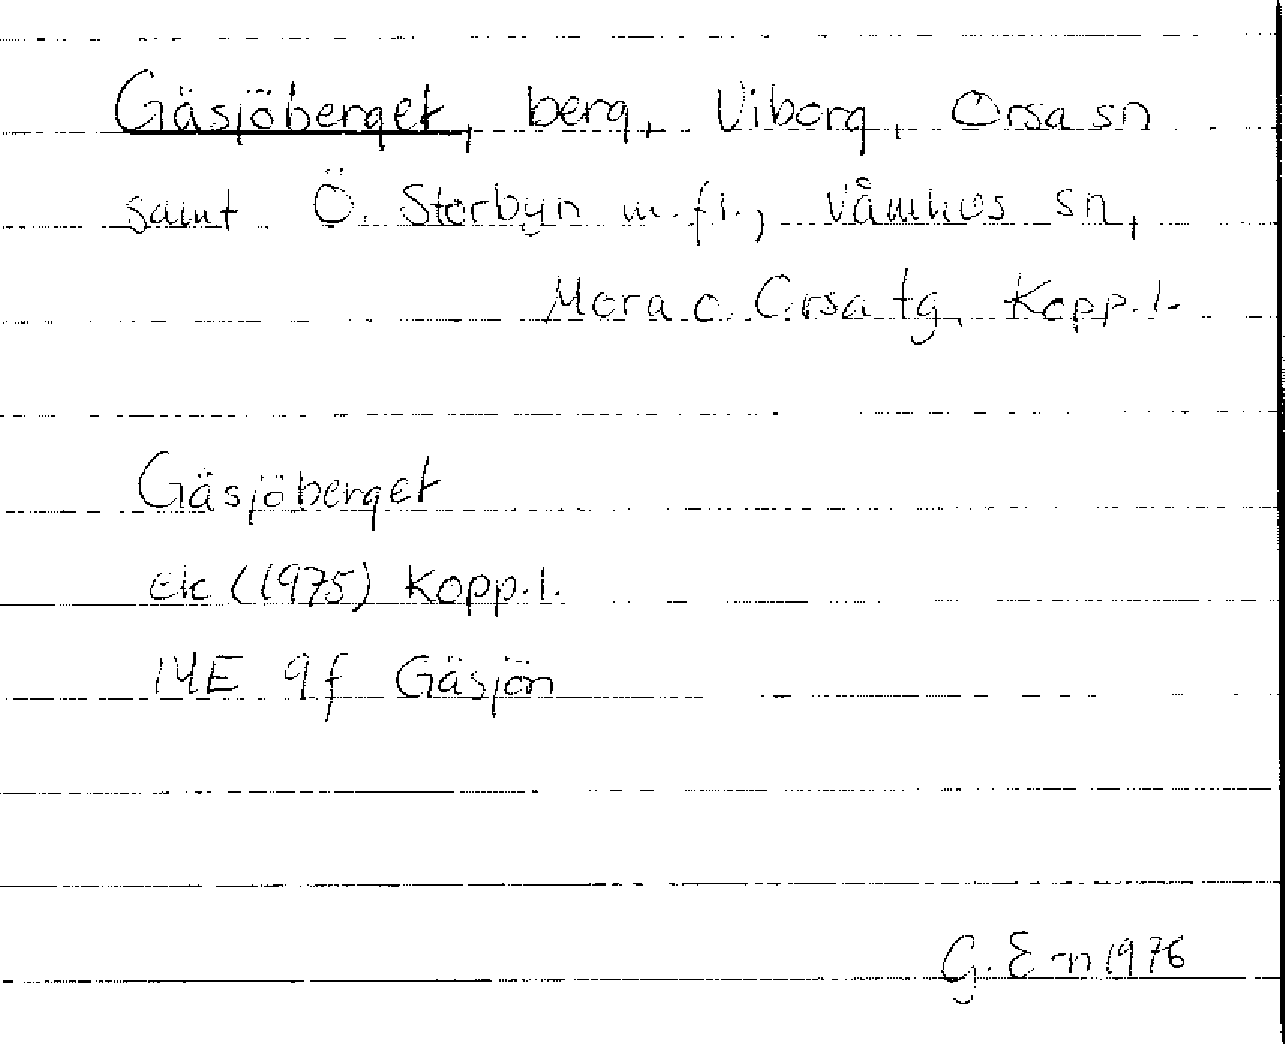 Gäsjöberget, berg, Viborg, Orsa sn
samt Ö. Storbyn m.fl., Våmhus sn,
Mora o. Orsa tg, Kopp. l.
Gäsjöberget
ek (1975) Kopp. l.
14E 9f Gäsjön
G. E-n 1976